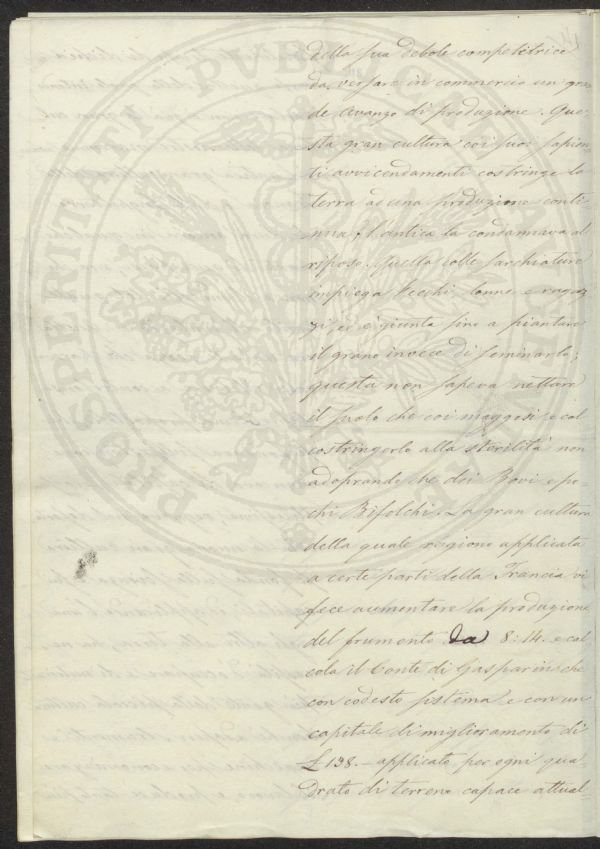 della sua debole competitrice
da versare in commercio un gran
de avanzo di produzione. Que,
sta gran cultura coi suoi sapien
ti avvicendamenti costringe la
terra ad una produzione conti
nua, l'antica la condannava al
riposo. Quella colle sarchiature
impiega Vecchi, Donne e ragaz
zi ed è giunta fino a piantare
il grano invece di seminarlo;
questa non sapeva nettare
il suolo che coi maggesi e col
costringerlo alla sterilità non
adoprando che dei Bovi e po
chi Bifolchi. La gran cultura
della quale ragiono applicata
a certe parti della Francia vi
fece aumentare la produzione
del frumento da 8: 14. e cal
cola il Conte di Gasparin che
con codesto sistema e con un
capitale di miglioramento di
£ 198. – applicato per ogni qua
drato di terreno capace attual
PROSPERITATI PUBLICAE AUGENDAE